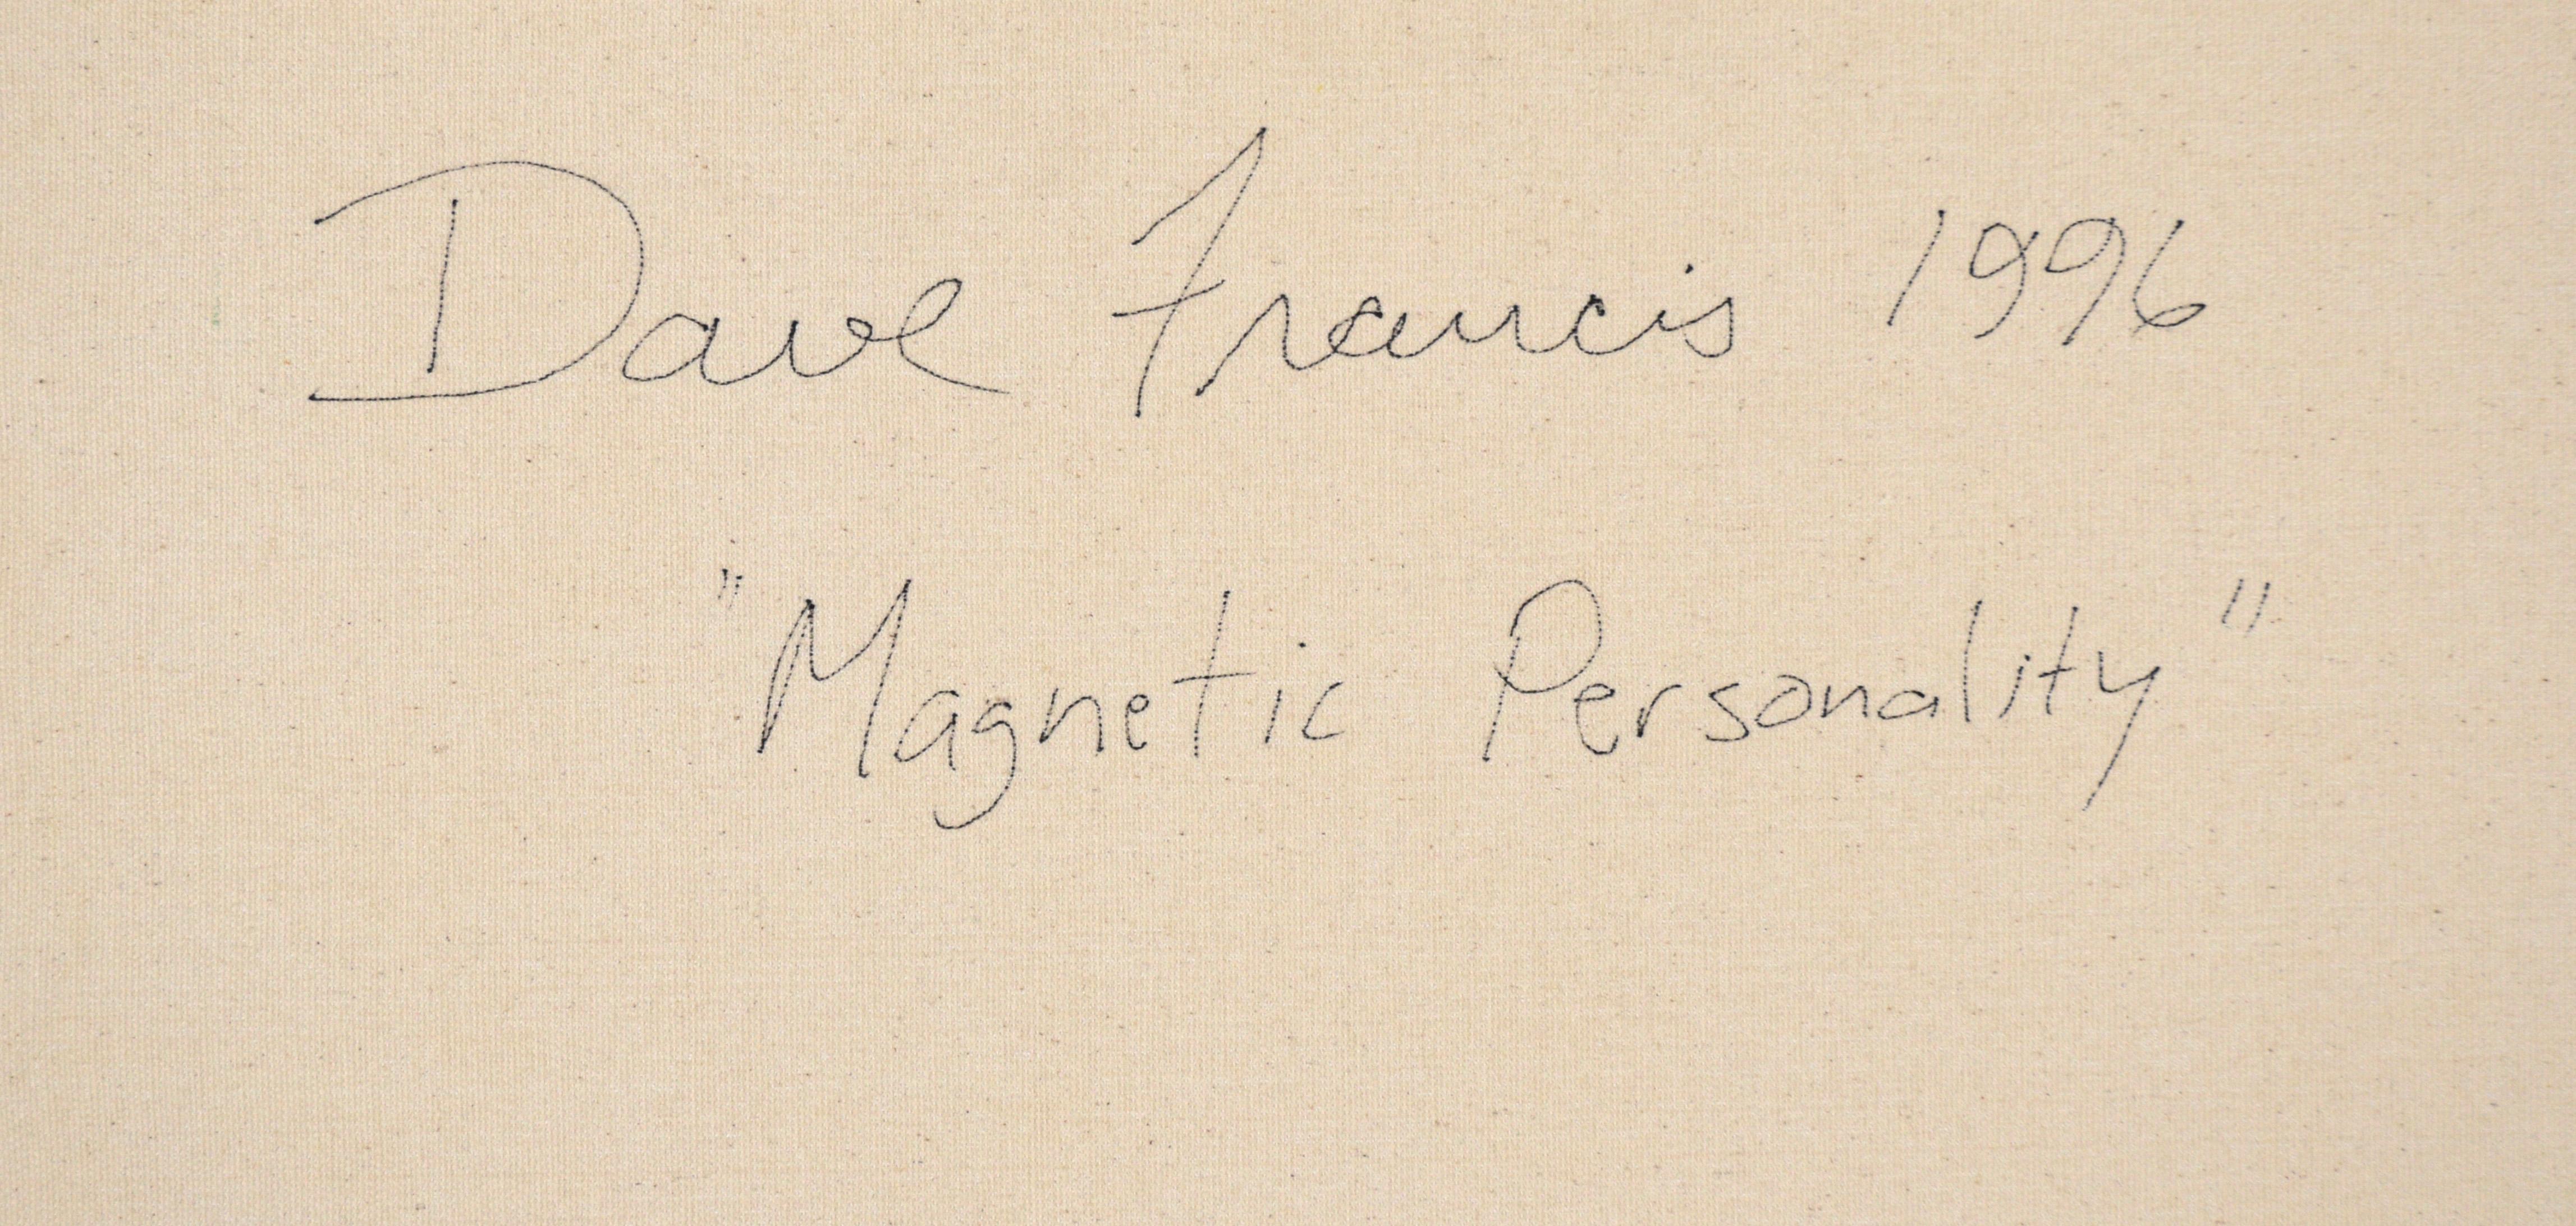 Dave Francis 1996
"Magnetic Personality"